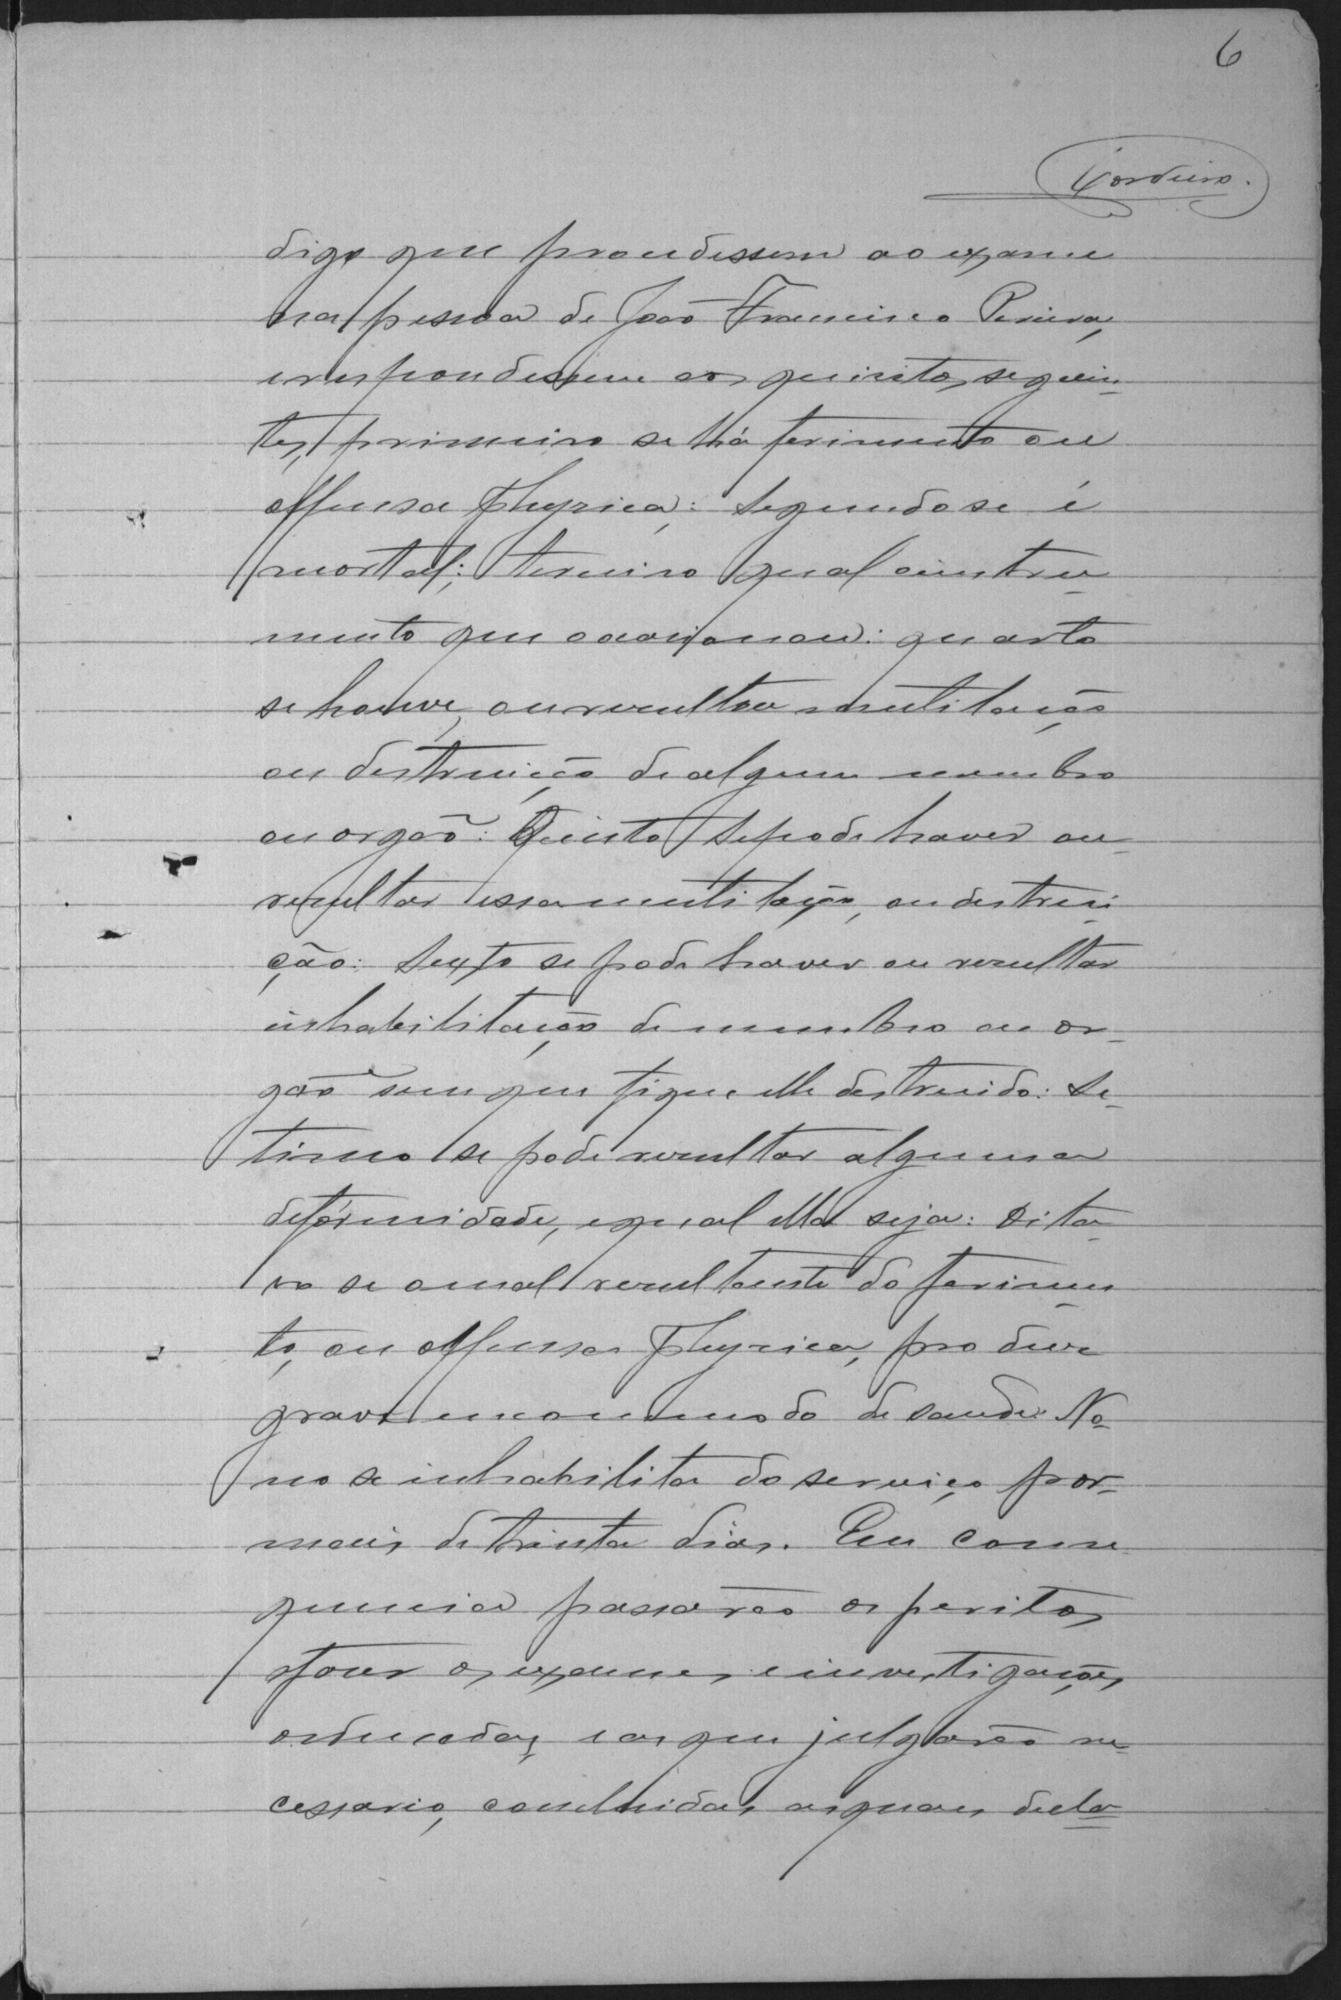 6
Cordeiro.
digo que procedessem ao exame
na pessoa de João Francisco Pereira,
e respondessem aos quisitos seguin-
tes, primeiro se há ferimento ou
offensa physica: Segundo se é
mortal; terceiro qual o instru-
mento que occasionou: quarto
se houve, ou resultou mutilação
ou destruição de algum membro
ou orgaõ: Quinto se pode haver ou
resultar essa mutilação, ou destrui-
ção: Sexto se pode haver ou resultar
inhabilitação de membro ou or-
gaõ sem que fique elle destruido: Se-
timo se pode resultar alguma
deformidade, e qual ella seja: Oita-
vo se o mal resultante do ferimen-
to, ou offensa physica, produz
grave incommodo de saude: No-
no se inhabilita do serviço por-
mais de trinta dias. Em conse-
quencia passarão os peritos
a fazer os exames e investigações
ordenadas, e as que julgarão ne-
cessario, concluidas as quaes decla-